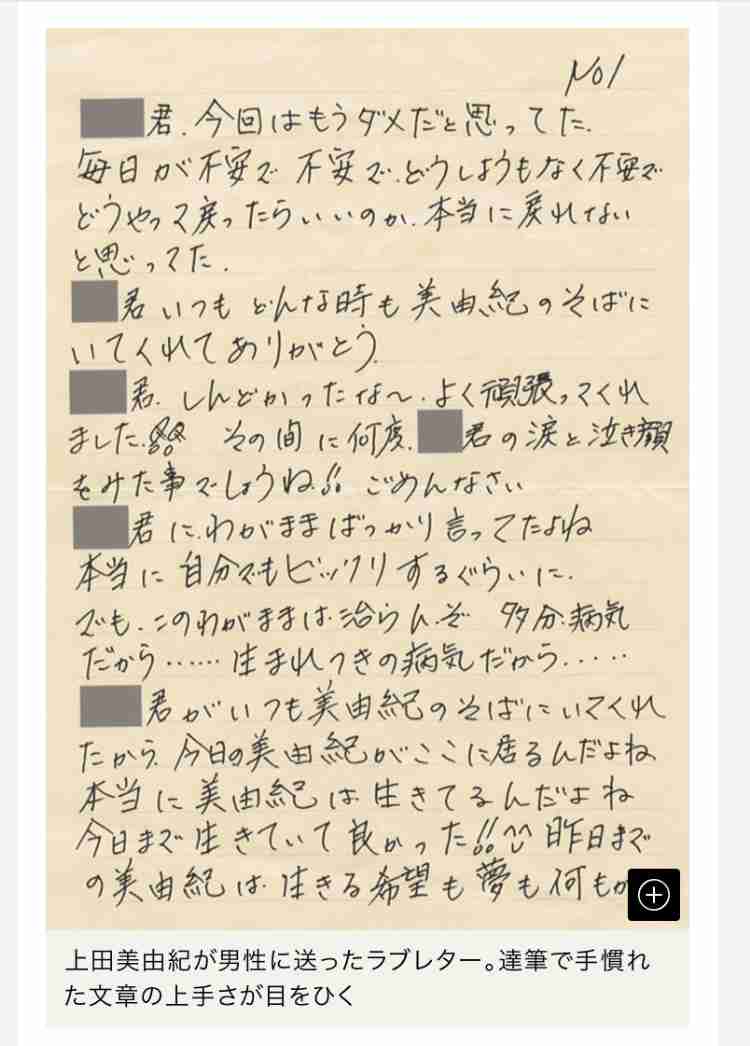 No1
君.今回はもうダメだと思ってた.
毎日が不安で 不安で.どうしようもなく不安で
どうやって戻ったらいいのか.本当に戻れない
と思ってた.
君 いつも どんな時も 美由紀のそばに
いてくれてありがとう.
君.しんどかったな〜.よく頑張ってくれ
ました. その間に何度.君の涙と泣き顔
をみた事でしょうね!! ごめんなさい
君に.わがままばっかり言ってたよね
本当に 自分でもビックリするぐらいに.
でも.このわがままは.治らん.ぞ 多分.病気
だから……生まれつきの病気だから.....
君がいつも美由紀のそばにいてくれ
たから.今日の美由紀がここに居るんだよね
本当に 美由紀は生きてるんだよね
今日まで生きていて良かった!! 昨日まで
の美由紀は.生きる希望も夢も何もか
上田美由紀が男性に送ったラブレター。達筆で手慣れ
た文章の上手さが目をひく